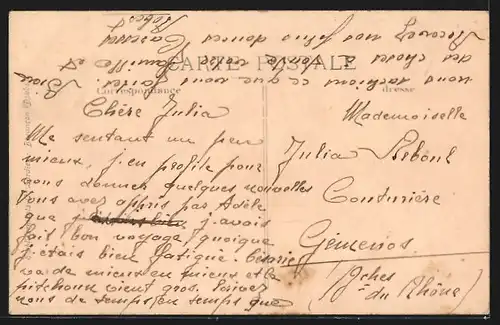 CARTE POSTALE
Correspondance
Adresse
Chère Julia
Me sentant un peu
mieux, j'en profite pour
vous donner quelques nouvelles
Vous avez appris par Adèle
que j'avais
fait bon voyage, quoique
j'étais bien fatigué.
va de mieux en mieux et le
pitchoun vient gros. Ecrivez
nous de temps en temps que
nous sachions ce que vous faites
des choses à toute votre famille et
Recevez nos plus douces Caresses
Mademoiselle
Julia Reboul
Couturière
Gémenos
Bches
du Rhône